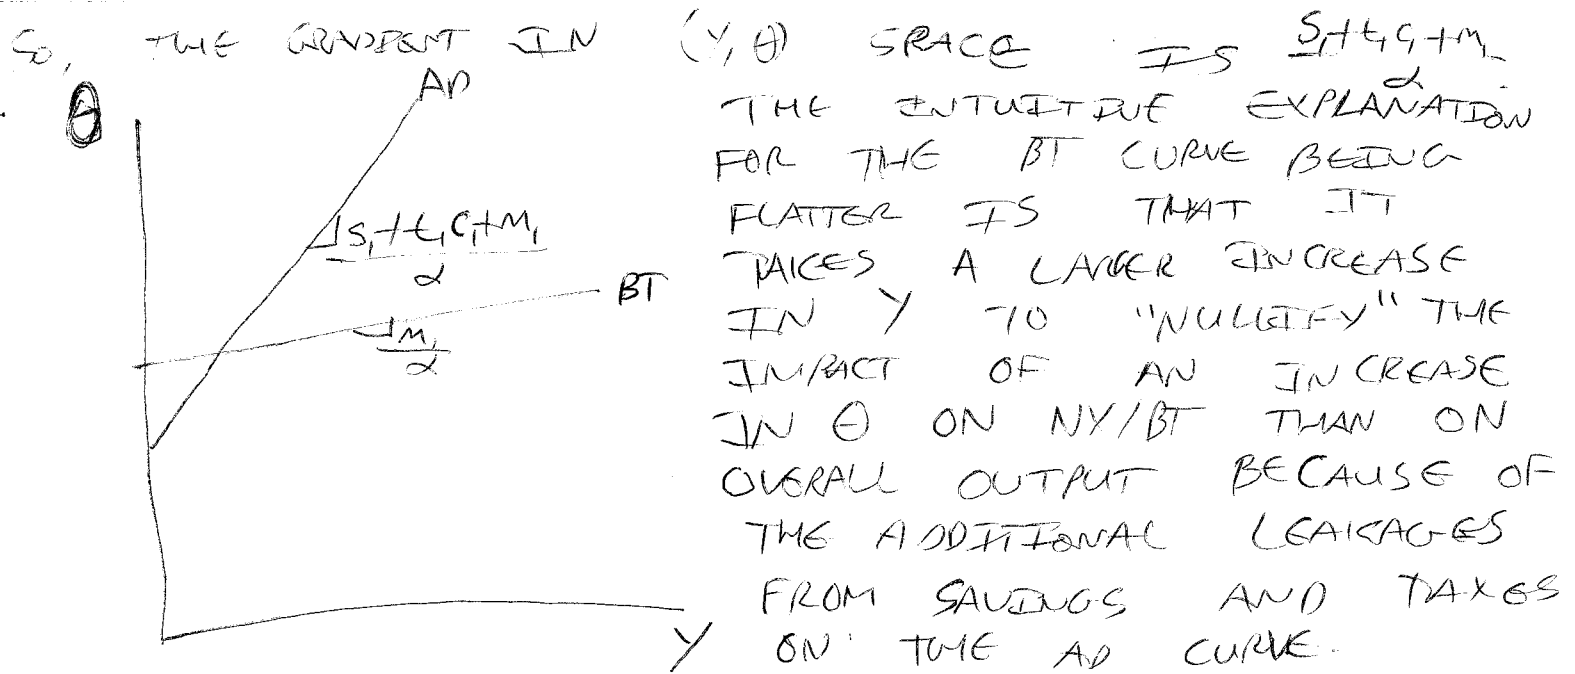 So, THE GRADIENT IN (Y, θ) SPACE IS (s₁+t₁c₁+m₁)/α
θ
AD
THE INTUITIVE EXPLANATION
FOR THE BT CURVE BEING
FLATTER IS THAT IT
(s₁+t₁c₁+m₁)/α
TAKES A LARGER INCREASE
BT
IN Y TO "NULLIFY" THE
m₁/α
IMPACT OF AN INCREASE
IN θ ON NX/BT THAN ON
OVERALL OUTPUT BECAUSE OF
THE ADDITIONAL LEAKAGES
FROM SAVINGS AND TAXES
Y
ON THE AD CURVE.